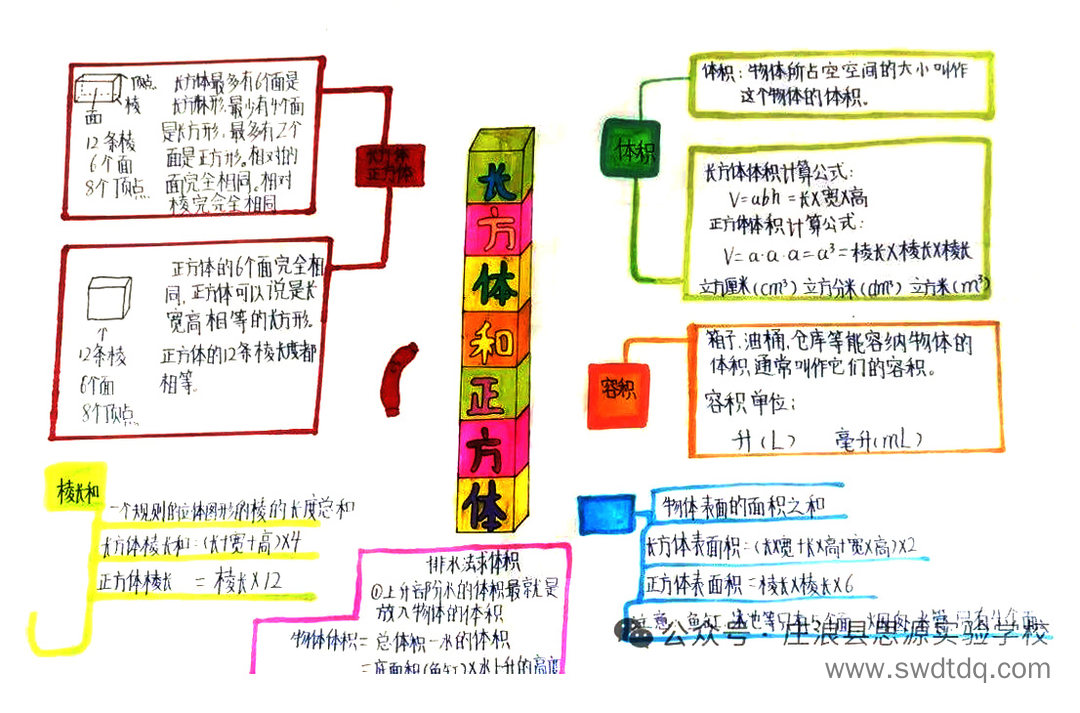 顶点
棱
面
12条棱
6个面
8个顶点
长方体最多有6个面是
长方形,最少有4个面
是长方形,最多有2个
面是正方形。相对的
面完全相同。相对
棱完完全相同
长方体
正方体
正方体的6个面完全相
同,正方体可以说是长
宽高相等的长方形。
正方体的12条棱长度都
相等。
12条棱
6个面
8个顶点
棱长和
一个规则的立体图形的棱的长度总和
长方体棱长和=(长+宽+高)×4
正方体棱长 = 棱长×12
长
方
体
和
正
方
体
排水法求体积
①上升部分水的体积最就是
放入物体的体积
物体体积= 总体积-水的体积
=底面积(鱼缸)×水上升的高度
体积
体积:物体所占空空间的大小叫作
这个物体的体积。
长方体体积计算公式:
V=abh=长×宽×高
正方体体积计算公式:
V=a·a·a=a³=棱长×棱长×棱长
立方厘米(cm³) 立方分米(dm³) 立方米(m³)
容积
箱子,油桶,仓库等能容纳物体的
体积,通常叫作它们的容积。
容积单位:
升(L) 毫升(mL)
物体表面的面积之和
长方体表面积=(长×宽+长×高+宽×高)×2
正方体表面积=棱长×棱长×6
注意:鱼缸
公众号·庄浪县思源实验学校
www.swdtdq.com